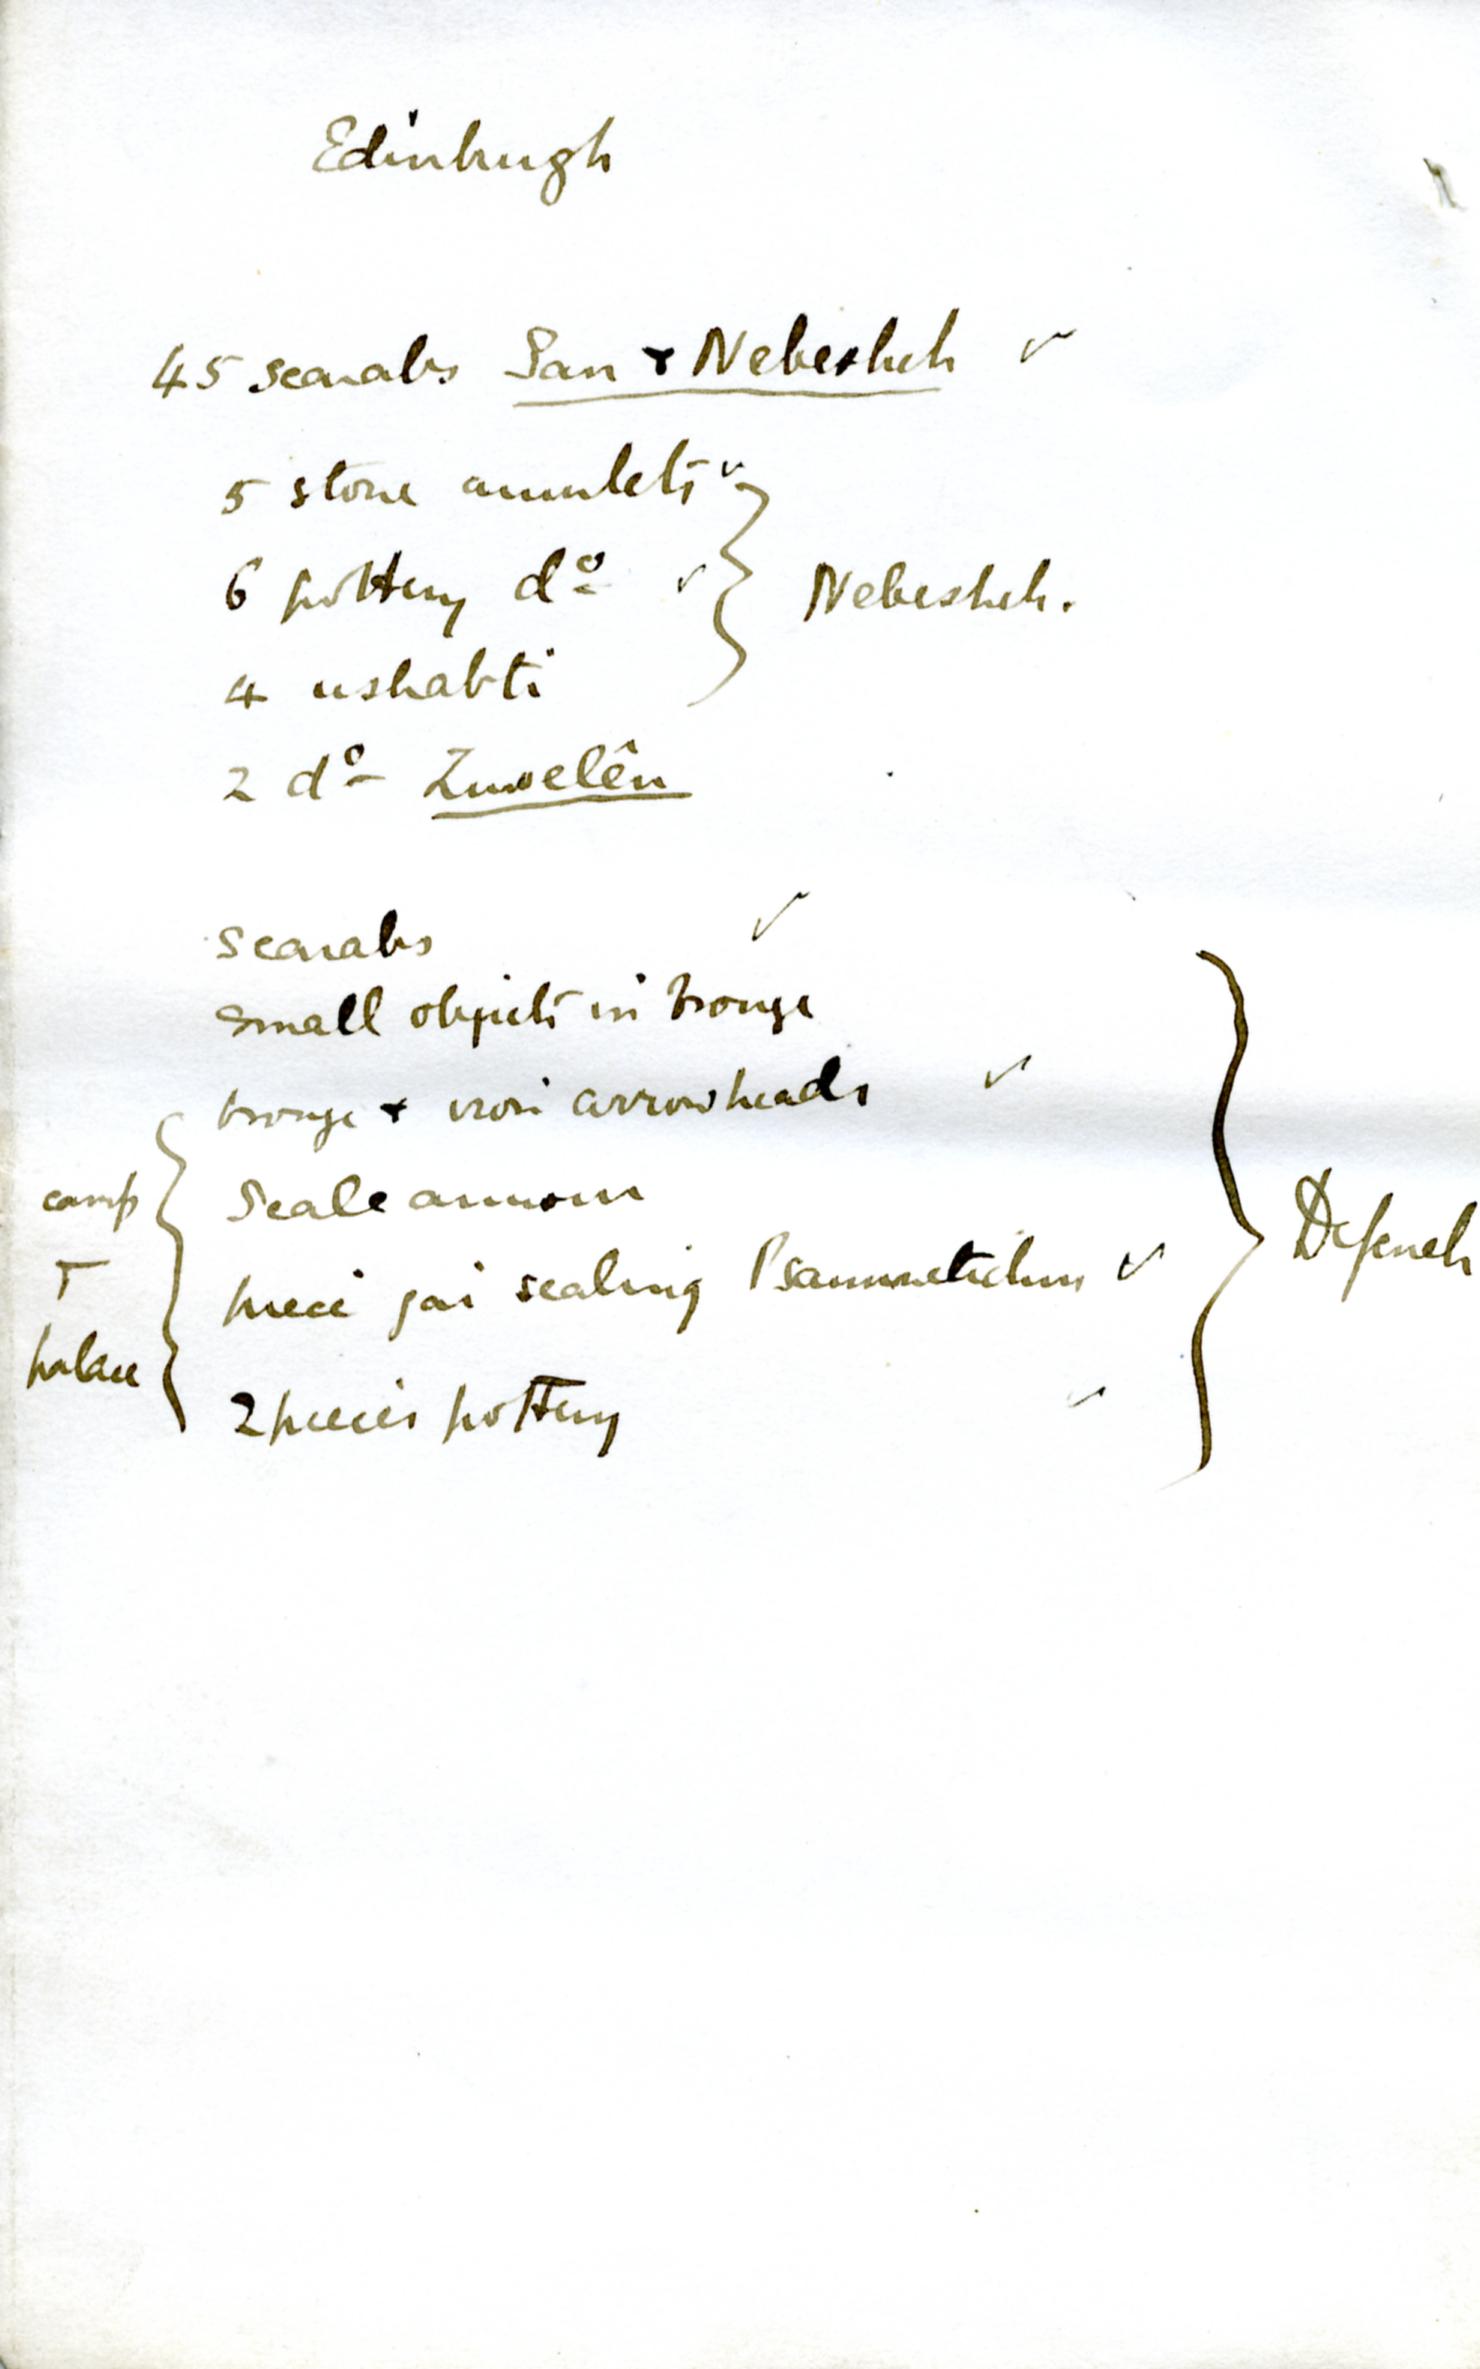 Edinburgh
45 scarabs San + Nebesheh ✓
5 stone amulets ✓
6 pottery dº ✓
Nebesheh.
4 ushabti
2 dº Zuwelên
scarabs ✓
small objects in bronze
bronze + iron arrowheads ✓
camp
Scale armour
+
Defeneh
piece jar sealing Psammetichus ✓
palace
2 pieces pottery ✓